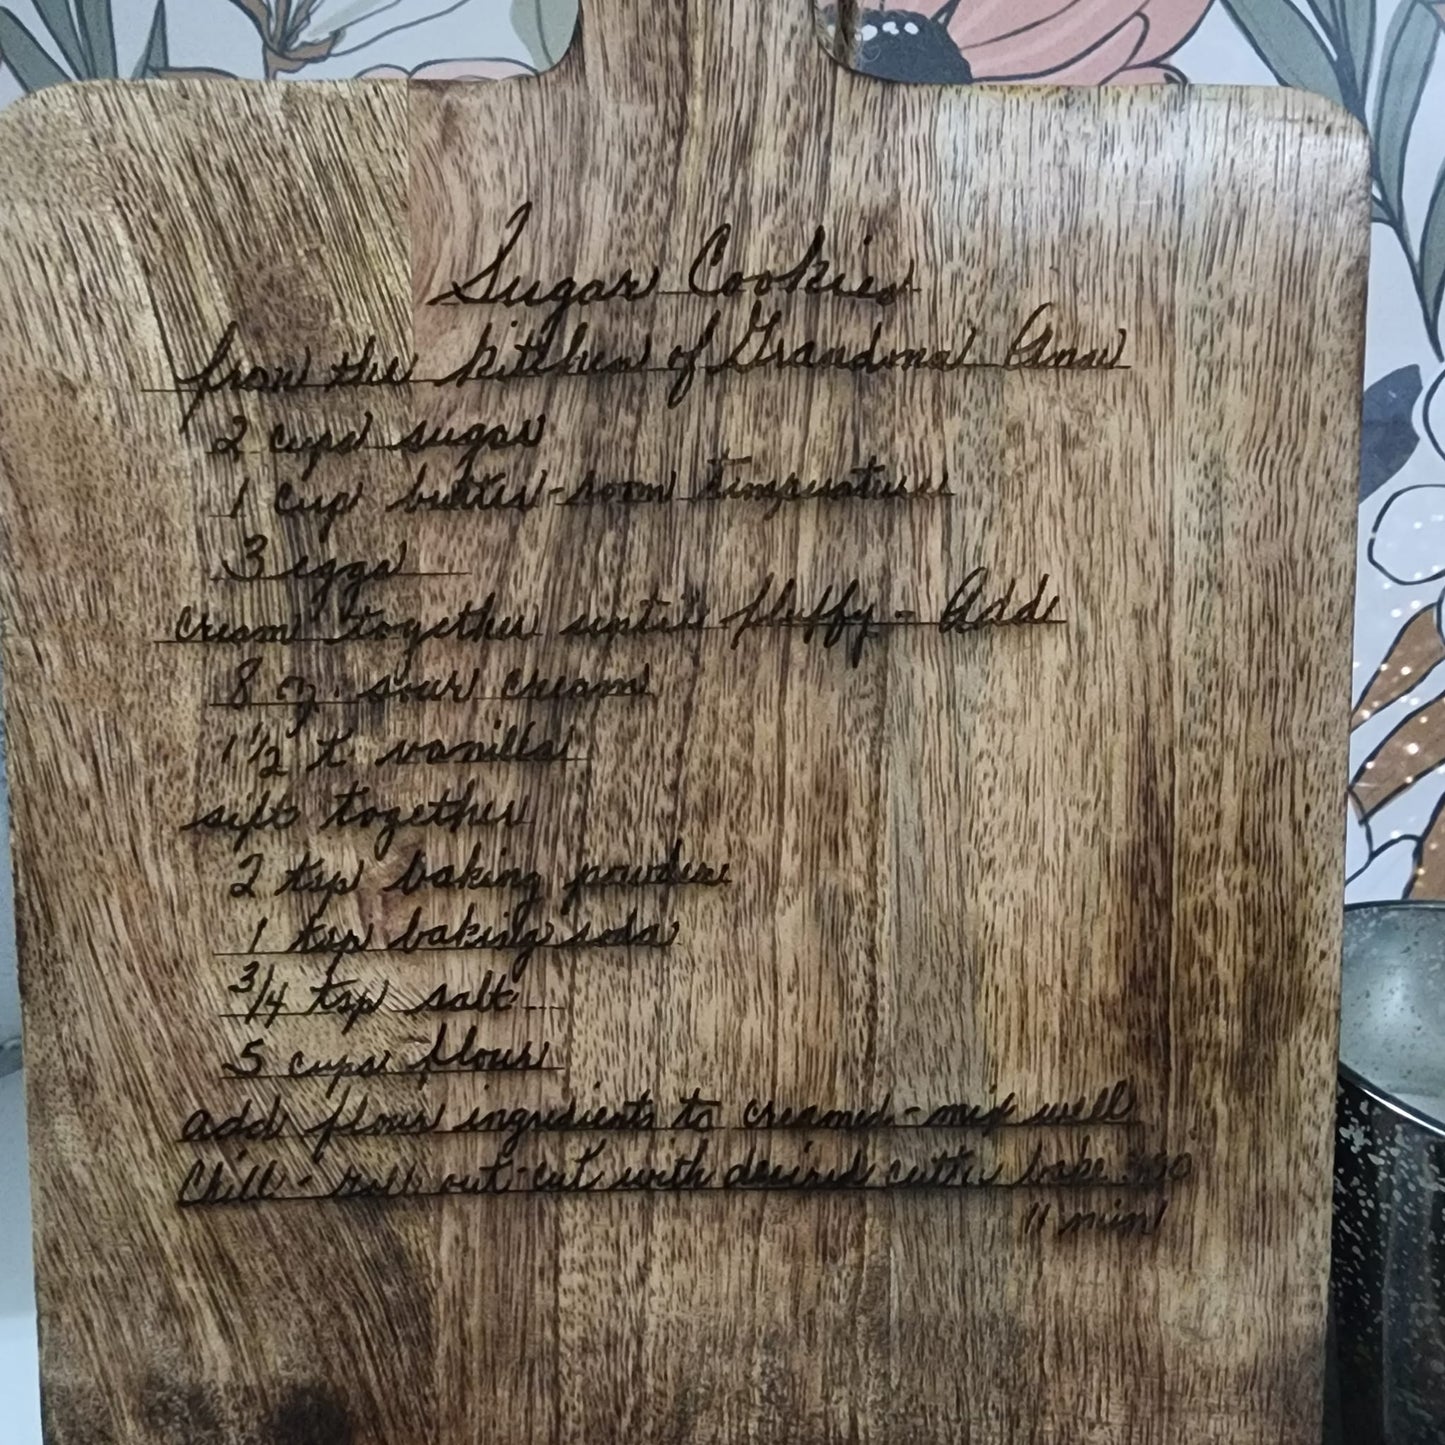 Sugar Cookies
from the kitchen of Grandma Ann
2 cups sugar
1 cup butter - room temperature
3 eggs
cream together until fluffy - Add
8 oz. sour cream
1 1/2 t. vanilla
sift together
2 tsp baking powder
1 tsp baking soda
3/4 tsp salt
5 cups flour
add flour ingredients to creamed - mix well
Chill - roll out - cut with desired cutter bake
11 min